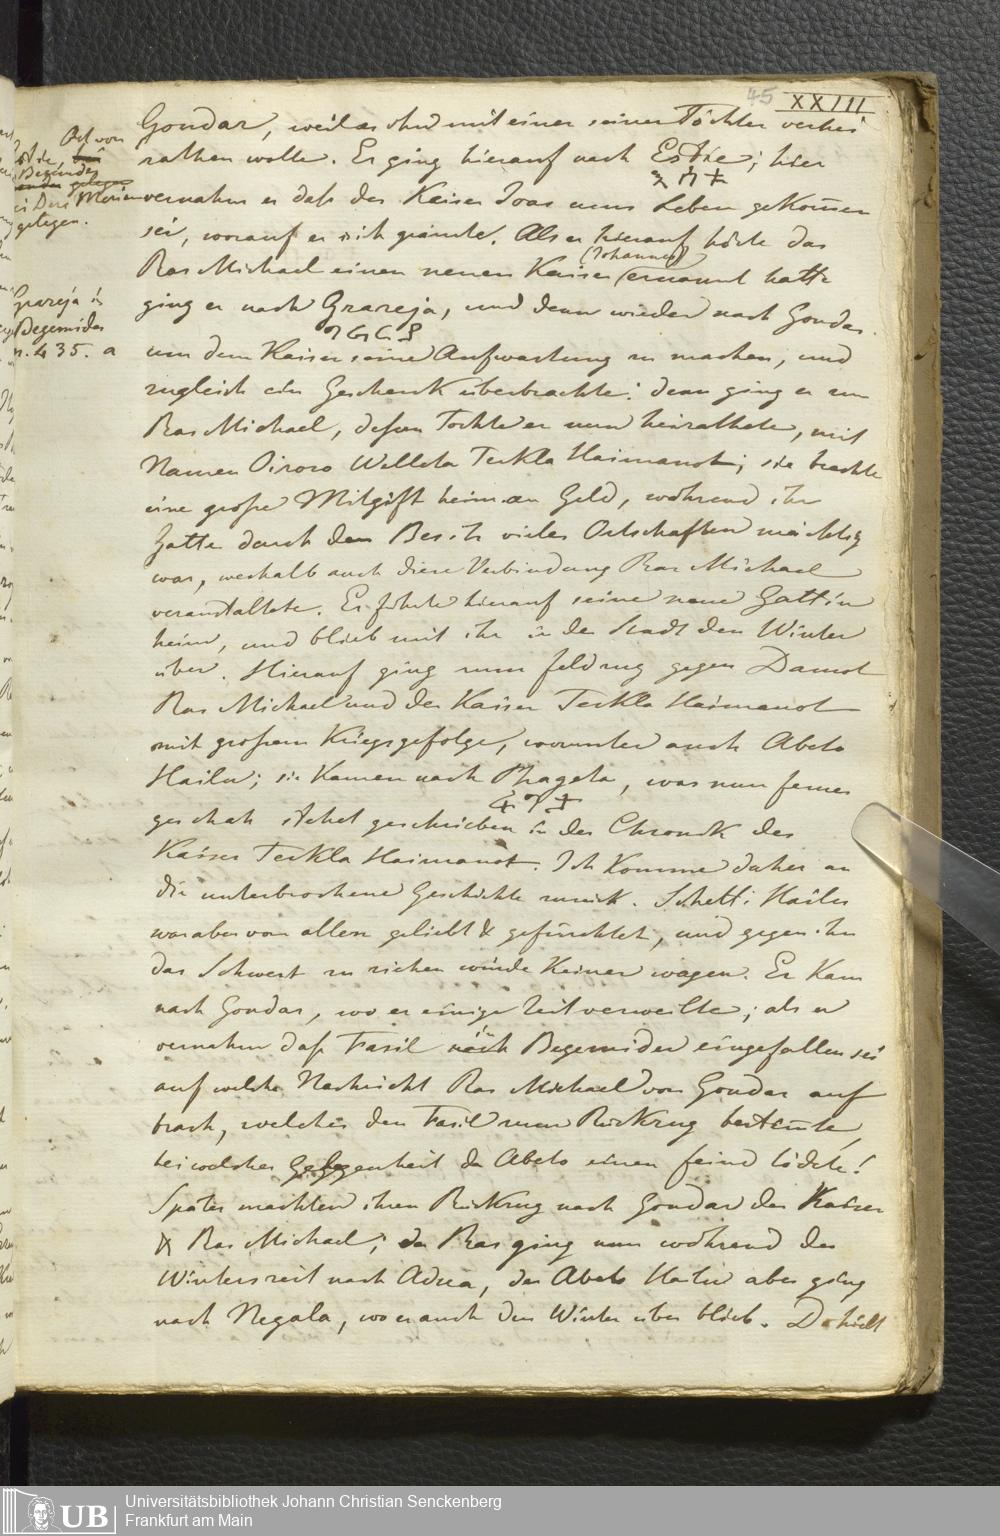 45 XXIII
Gondar, weil er ihn mit einer seiner Töchter verhei
rathen wollte. Er ging hierauf nach Estie; hier
vernahm er daß der Kaiser Joas ums Leben gekom̄en
sei, worauf er sich grämte. Als er hierauf hörte das
(Johannes)
Ras Michael einen neuen Kaiser ernannt hatte
ging er nach Grareja, und dann wieder nach Gondar
um dem Kaiser seine Aufwartung zu machen, und
zugleich ein Geschenk überbrachte: dann ging er zum
Ras Michael, deßen Tochter er nun heirathete, mit
Namen Oizoro Welleta Tekla Haimanot; sie brachte
eine große Mitgift heim an Geld, während ihr
Gatte durch den Besitz vieler Ortschaften mächtig
war, weshalb auch diese Verbindung Ras Michael
veranstaltete. Er führte hierauf seine neue Gattin
heim, und blieb mit ihr in der Stadt den Winter
über. Hierauf ging zum Feldzug gegen Damot
Ras Michael und der Kaiser Tekla Haimanot
mit großem Kriegsgefolge, worunter auch Abeto
Hailu; sie kamen nach Phageta, was nun ferner
ፋግታ
geschah stehet geschrieben in der Chronik des
Kaisers Tekla Haimanot. Ich komme daher an
die unterbrochene Geschichte zurück. Schetti Hailu
war aber von allen geliebt & gefürchtet, und gegen ihn
das Schwert zu ziehen würde Keiner wagen. Er kam
nach Gondar, wo er einige Zeit verweilte; als er
vernahm daß Fasil in Begemider eingefallen sei
auf welche Nachricht Ras Michael von Gondar auf
brach, welches den Fasil zum Rückzug bestim̄te,
bei welcher Gelegenheit der Abeto einen Feind tödete!
Später machten ihren Rückzug nach Gondar der Kaiser
& Ras Michael; der Ras ging nun während der
Winterszeit nach Adua, der Abeto Hailu aber ging
nach Negala, wo er auch den Winter über blieb. Dahielt
Ort von
Begemder
gelegen.
Grareja in
Begemider
n. 435. a
Universitätsbibliothek Johann Christian Senckenberg
Frankfurt am Main
UB